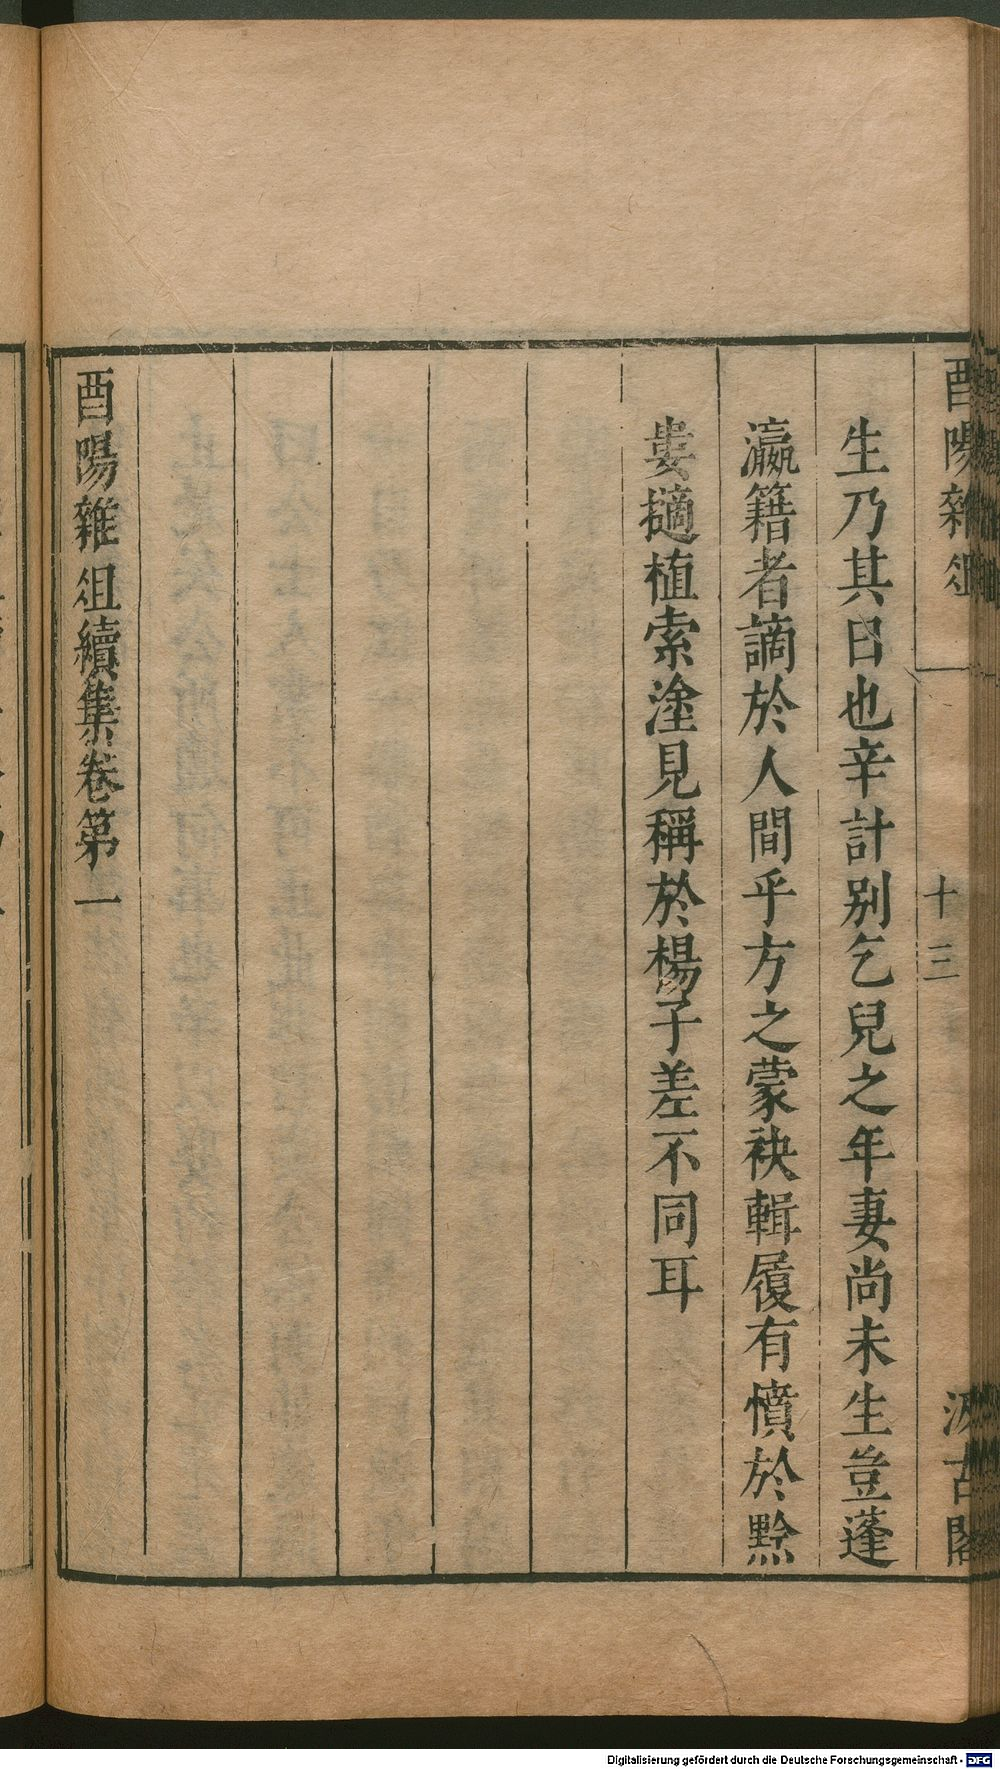 酉陽雜俎
十三
汲古閣
生乃其日也辛計別乞兒之年妻尚未生豈蓬
瀛籍者謫於人間乎方之蒙袂輯履有憤於黔
婁擿植索塗見稱於楊子差不同耳
酉陽雜俎續集卷第一
Digitalisierung gefördert durch die Deutsche Forschungsgemeinschaft - DFG